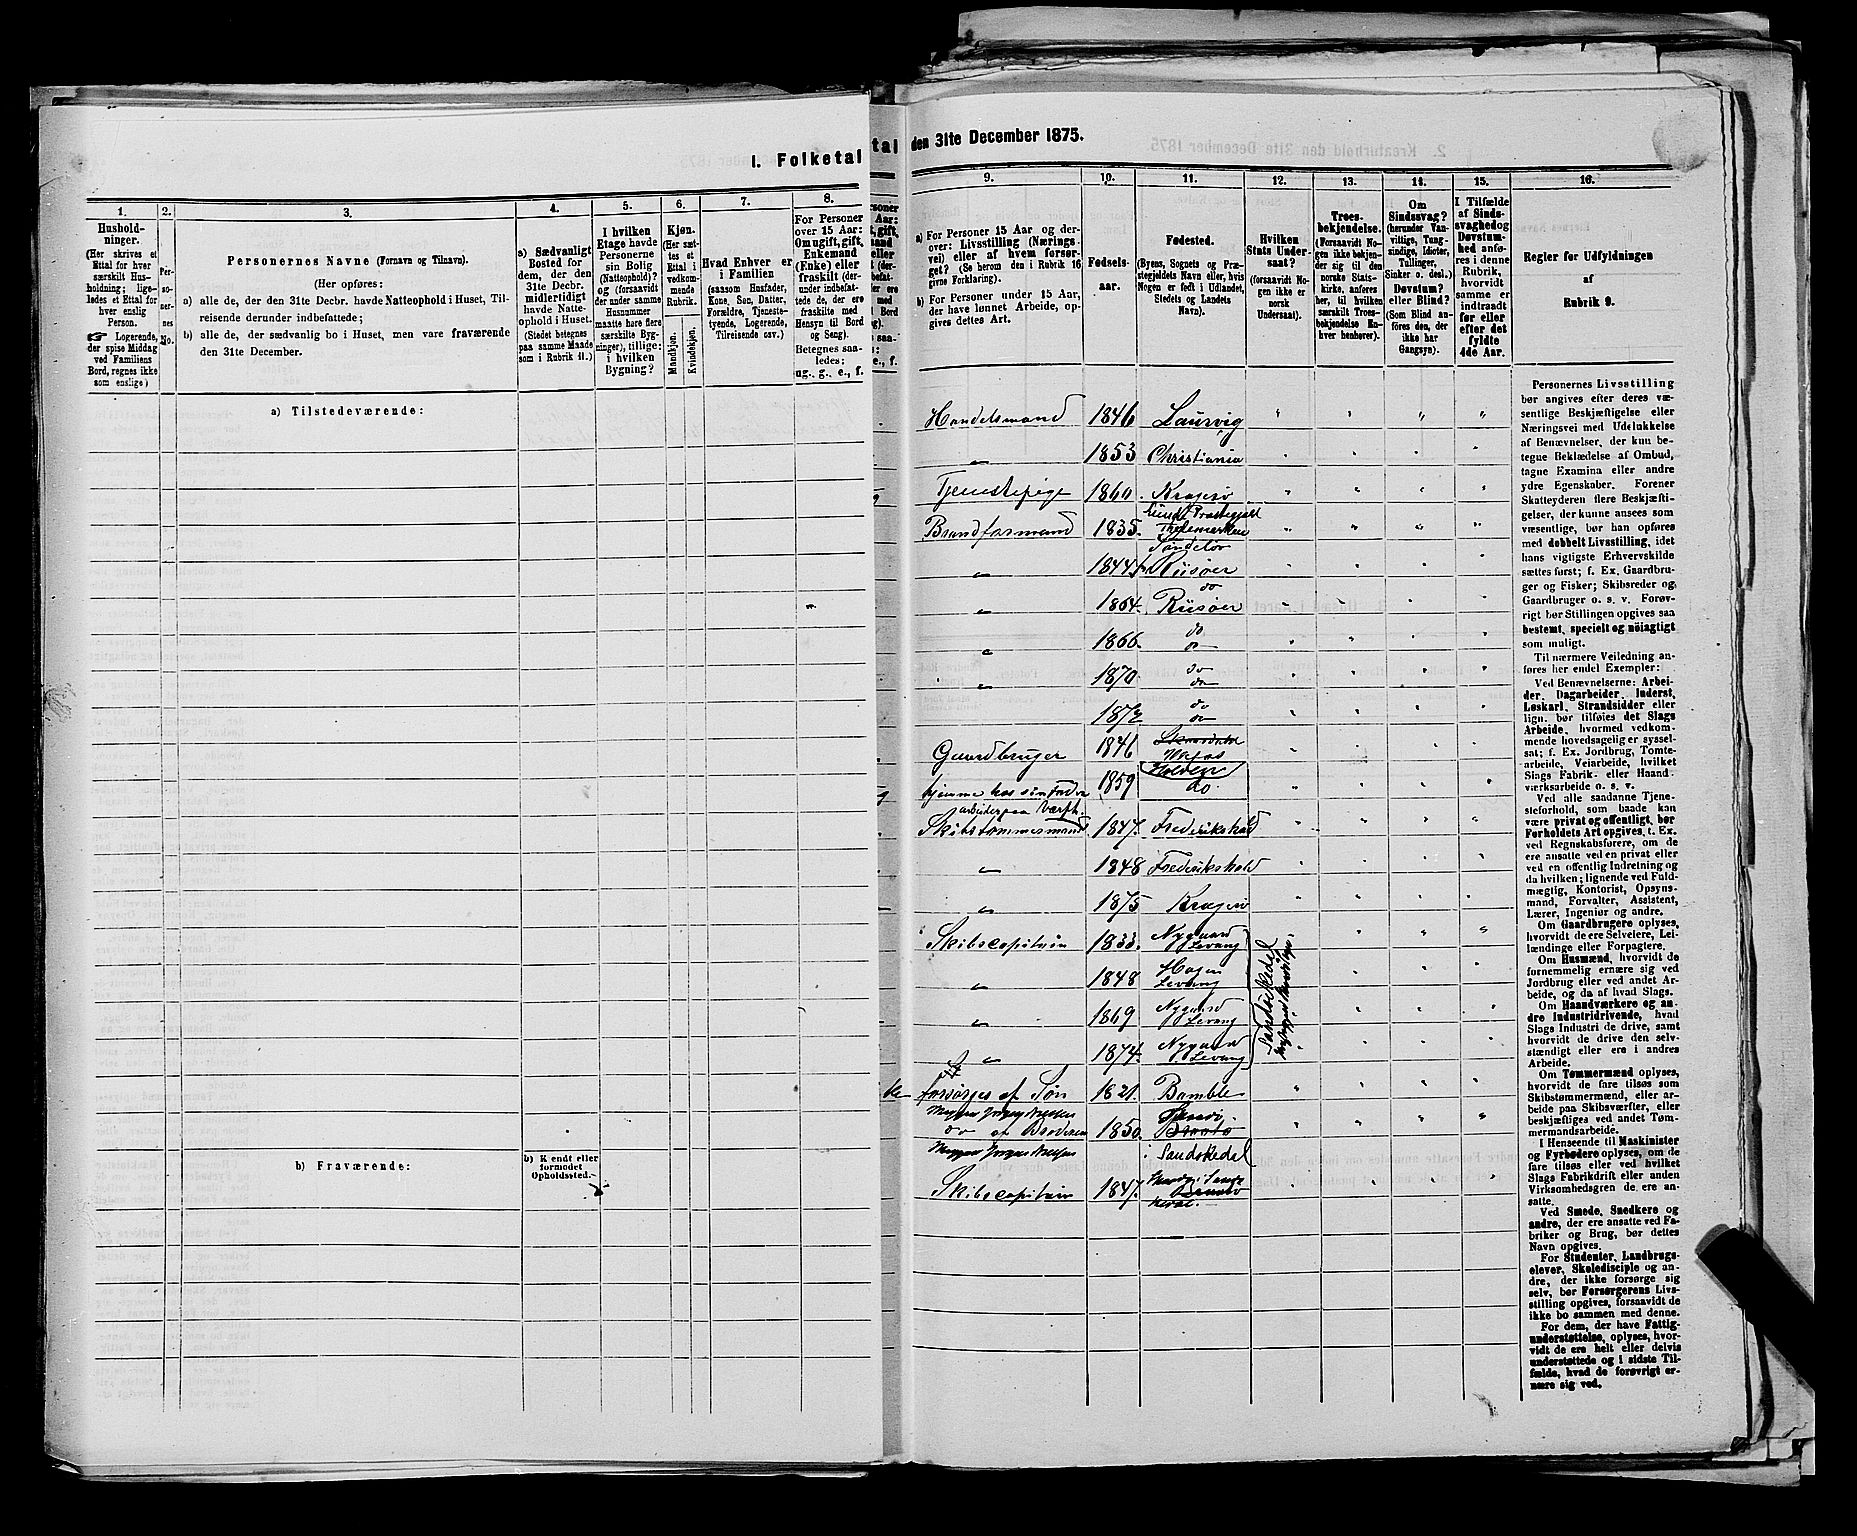 I. Folketal
tal
den 31te December 1875.
1.
2.
3.
4.
5.
6.
7.
8.
Hushold-
ninger.
(Her skrives et
Ettal for hver
særskilt Hus-
holdning; lige-
ledes et Ettal for
hver enslig
Person.
☞ Logerende,
der spise Middag
ved Familiens
Bord, regnes ikke
som enslige)
Per-
so-
ner-
nes
No.
Personernes Navne (Fornavn og Tilnavn).
(Her opføres:
a) alle de, der den 31te Decbr. havde Natteophold i Huset, Til-
reisende derunder indbefattede;
b) alle de, der sædvanlig bo i Huset, men vare fraværende
den 31te December.
a) Sædvanligt
Bosted for
dem, der den
31te Decbr.
midlertidigt
havde Natte-
ophold i Huset.
(Stedet betegnes
paa samme Maade
som i Rubrik 11.)
I hvilken
Etage havde
Personerne
sin Bolig
(Natteophold)?
og (forsaavidt
der under samme
Husnummer
maatte høre flere
særskilte Byg-
ninger), tillige:
i hvilken
Bygning?
Kjøn.
(Her sæt-
tes et
Ettal i
vedkom-
mende
Rubrik.
Mandkjøn.
Kvindekjøn.
Hvad Enhver er
i Familien
(saasom Husfader,
Kone, Søn, Datter,
Forældre, Tjeneste-
tyende, Logerende,
Tilreisende osv.)
For Personer
over 15 Aar:
Om ugift, gift,
Enkemand
(Enke) eller
fraskilt (der-
under indbefat-
tede de, der ere
fraskilte med
Hensyn til Bord
og Seng).
Betegnes saa-
ledes:
ug., g., e., f.
a) Tilstedeværende:
b) Fraværende:
b) Kjendt eller
formodet
Opholdssted.
9.
10.
11.
12.
13.
14.
15.
16.
a) For Personer 15 Aar og der-
over: Livsstilling (Nærings-
vei) eller af hvem forsør-
get? (Se herom den i Rubrik 16
givne Forklaring).
b) For Personer under 15 Aar,
der have lønnet Arbeide, op-
gives dettes Art.
Fødsels-
aar.
Fødested.
(Byens, Sognets og Præ-
stegjeldets Navn eller, hvis
Nogen er født i Udlandet,
Stedets og Landets
Navn).
Hvilken
Stats Under-
saat?
(forsaavidt No-
gen ikke er
norsk
Undersaat).
Troes-
bekjendelse.
(Forsaavidt No-
gen ikke bekjen-
der sig til den
norske Stats-
kirke, anføres
her, til hvilken
særskilt Troes-
bekjendelse En-
hver henhører).
Om
Sindssvag?
(herunder Van-
vittige, Tung-
sindige, Idioter,
Tullinger,
Sinker o. desl.)
Døvstum?
eller Blind?
(Som Blind an-
føres den, der
ikke har
Gangsyn).
I Tilfælde
af Sinds-
svaghed og
Døvstum-
hed anfø-
res i denne
Rubrik,
hvorvidt
samme er
indtraadt
før eller
efter det
fyldte
4de Aar.
Regler for Udfyldningen
af
Rubrik 9.
Handelsmand 1846 Laurvig
1853 Christiania
Tjenestepige 1860. Kragerø
Brandformand 1835. Eiinds Præstegjeld Thelemarken
1844 Søndeløv Riisøer
1864. do Riisøer
1866. do do
1870 do do
1872 do do
Gaardbruger 1846
hjemme hos sin fader 1859 Holden do.
arbeider paa Værft.
Skibstømmermand 1847. Frederikshald
1848 Frederikshald
1875 Kragerø
Skibscapitain 1833. Nygaard Levang
1848 Hagen Levang
1869 Nygaard Levang
1874. Nygaard Levang
Sandøkedel
forsørges af Søn 1821. Bamble
do af Broderen 1850. Skaadø
i Sandøkedel
Skibscapitain 1847.
Personernes Livsstilling
bør angives efter deres væ-
sentlige Beskjæftigelse eller
Næringsvei med Udelukkelse
af Benævnelser, der kun be-
tegne Beklædelse af Ombud,
tagne Examina eller andre
ydre Egenskaber. Forener
Skatteyderen flere Beskjæfti-
gelser, der kunne ansees som
væsentlige, bør han opføres
med dobbelt Livsstilling, idet
hans vigtigste Erhvervskilde
sættes først; f. Ex. Gaardbru-
ger og Fisker; Skibsreder og
Gaardbruger o. s. v. Forøv-
rigt bør Stillingen opgives saa
bestemt, specielt og nøiagtigt
som muligt.
Til nærmere Veiledning an-
føres her endel Exempler:
Ved Benævnelserne: Arbei-
der, Dagarbeider, Inderst,
Løskarl, Strandsidder eller
lign. bør tilføies det Slags
Arbeide, hvormed vedkom-
mende hovedsagelig er syssel-
sat; f. Ex. Jordbrug, Tomte-
arbeide, Veiarbeide, hvilket
Slags Fabrik- eller Haand-
værksarbeide o. s. v.
Ved alle saadanne Tjene-
steforhold, som baade kan
være privat og offentligt, bør
Forholdets Art opgives, t. Ex.
ved Regnskabsførere, om de
ere ansatte ved en privat eller
ved en offentlig Indretning og
da hvilken; lignende ved Fuld-
mægtig, Kontorist, Opsyns-
mand, Forvalter, Assistent,
Lærer, Ingeniør og andre.
Om Gaardbrugere oplyses,
hvorvidt de ere Selveiere, Lei-
lændinge eller Forpagtere.
Om Husmænd, hvorvidt de
fornemmelig ernære sig ved
Jordbrug eller ved andet Ar-
beide, og da af hvad Slags.
Om Haandværkere og an-
dre Industridrivende, hvad
Slags Industri de drive, samt
hvorvidt de drive den selv-
stændigt eller ere i andres
Arbeide.
Om Tømmermænd oplyses,
hvorvidt de fare tilsøs som
Skibstømmermænd, eller ar-
beide paa Skibsværfter, eller
beskjæftiges ved andet Tøm-
mermandsarbeide.
I Henseende til Maskinister
og Fyrbødere oplyses, om de
fare tilsøs eller ved hvilket
Slags Fabrikdrift eller anden
Virksomhedsgren de ere an-
satte.
Ved Smede, Snedkere og
andre, der ere ansatte ved Fa-
briker og Brug, bør dettes
Navn opgives.
For Studenter, Landbrugs-
elever, Skoledisciple og an-
dre, der ikke forsørge sig
selv, bør Forsørgerens Livs-
stilling opgives, forsaavidt de
ikke bo sammen med denne.
For dem, der have Fattig-
understøttelse, oplyses, hvor-
vidt de ere helt eller delvis
understøttede og i sidste Til-
fælde, hvad de forøvrigt er-
nære sig ved.